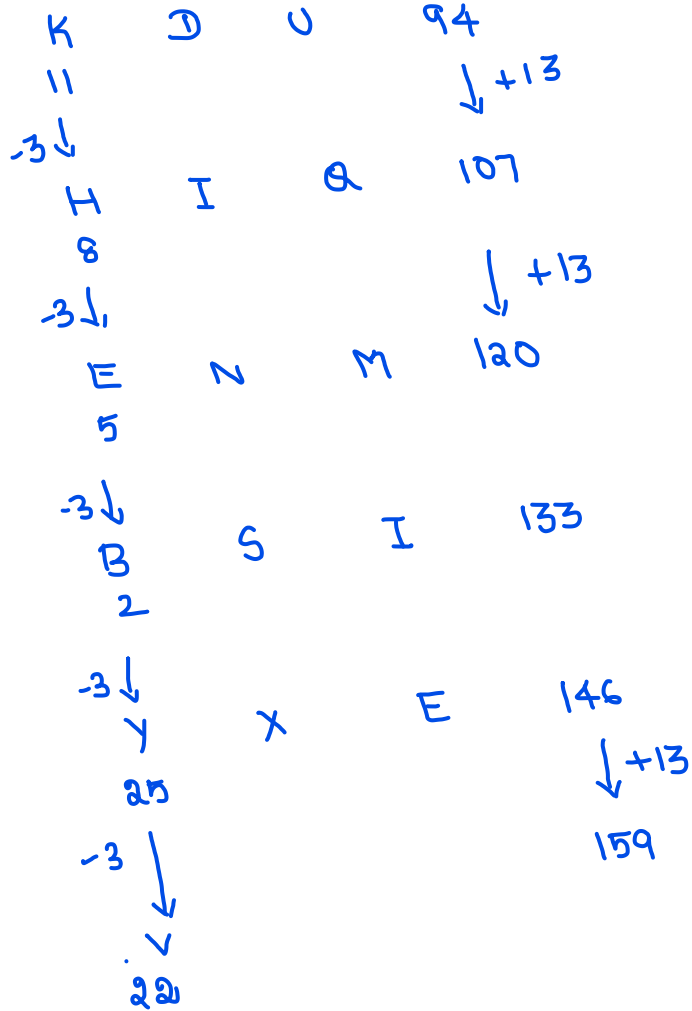 K D U 94
11 +13
-3
H I Q 107
8
-3 +13
E N M 120
5
-3
B S I 133
2
-3
Y X E 146
25 +13
-3 159
V
22